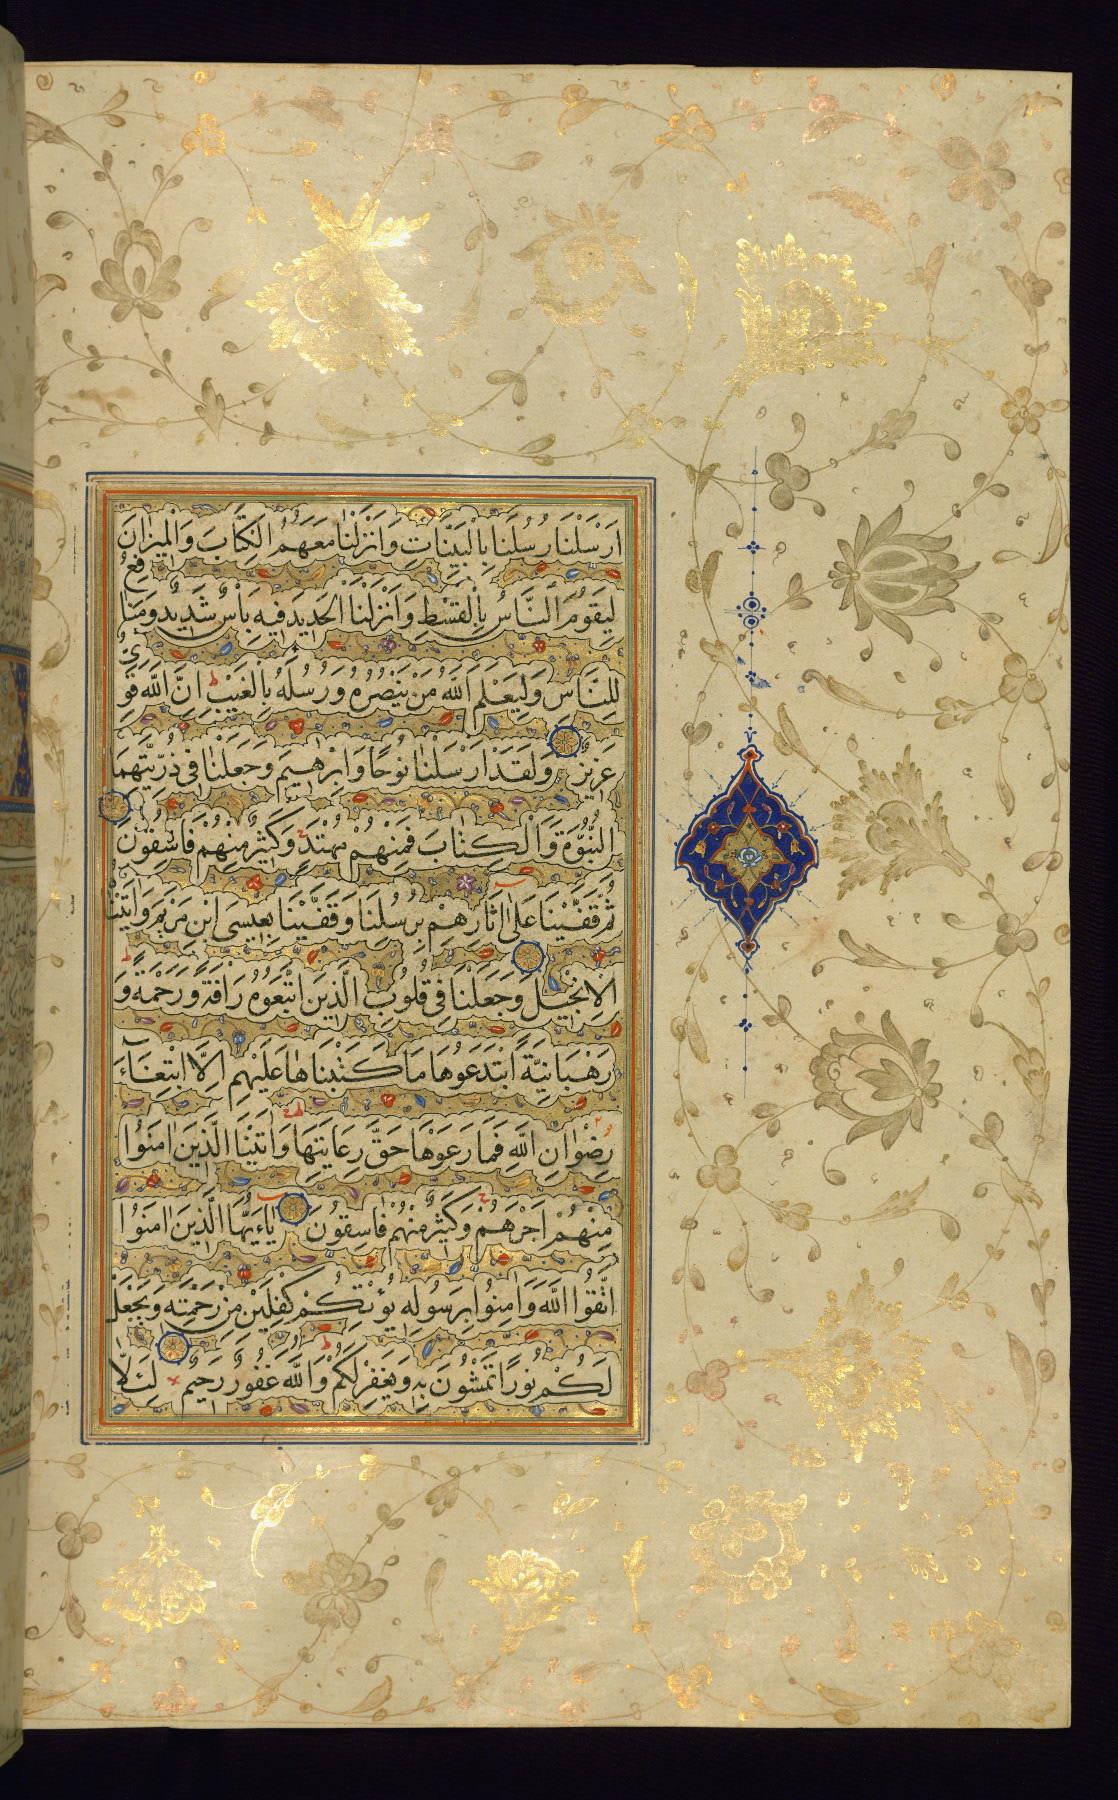 اَرْسَلْنَا رُسُلَنَا بِالْبَيِّنَاتِ وَاَنْزَلْنَا مَعَهُمُ الْكِتَابَ وَالْمِيزَانَ
لِيَقُومَ النَّاسُ بِالْقِسْطِ وَاَنْزَلْنَا الْحَدِيدَ فِيهِ بَأْسٌ شَدِيدٌ وَمَنَافِعُ
لِلنَّاسِ وَلِيَعْلَمَ اللّٰهُ مَنْ يَنْصُرُهُ وَرُسُلَهُ بِالْغَيْبِ اِنَّ اللّٰهَ قَوِيٌّ
عَزِيزٌ وَلَقَدْ اَرْسَلْنَا نُوحًا وَاِبْرٰهِيمَ وَجَعَلْنَا فِي ذُرِّيَّتِهِمَا
النُّبُوَّةَ وَالْكِتَابَ فَمِنْهُمْ مُهْتَدٍ وَكَثِيرٌ مِنْهُمْ فَاسِقُونَ
ثُمَّ قَفَّيْنَا عَلٰى اٰثَارِهِمْ بِرُسُلِنَا وَقَفَّيْنَا بِعِيسَى ابْنِ مَرْيَمَ وَاٰتَيْنَاهُ
الْاِنْجِيلَ وَجَعَلْنَا فِي قُلُوبِ الَّذِينَ اتَّبَعُوهُ رَاْفَةً وَرَحْمَةً وَ
رَهْبَانِيَّةً ابْتَدَعُوهَا مَا كَتَبْنَاهَا عَلَيْهِمْ اِلَّا ابْتِغَاءَ
رِضْوَانِ اللّٰهِ فَمَا رَعَوْهَا حَقَّ رِعَايَتِهَا وَاٰتَيْنَا الَّذِينَ اٰمَنُوا
مِنْهُمْ اَجْرَهُمْ وَكَثِيرٌ مِنْهُمْ فَاسِقُونَ يَاءَيُّهَا الَّذِينَ اٰمَنُوا
اتَّقُوا اللّٰهَ وَاٰمِنُوا بِرَسُولِهِ يُؤْتِكُمْ كِفْلَيْنِ مِنْ رَحْمَتِهِ وَيَجْعَلْ
لَكُمْ نُورًا تَمْشُونَ بِهِ وَيَغْفِرْ لَكُمْ وَاللّٰهُ غَفُورٌ رَحِيمٌ لِئَلَّا